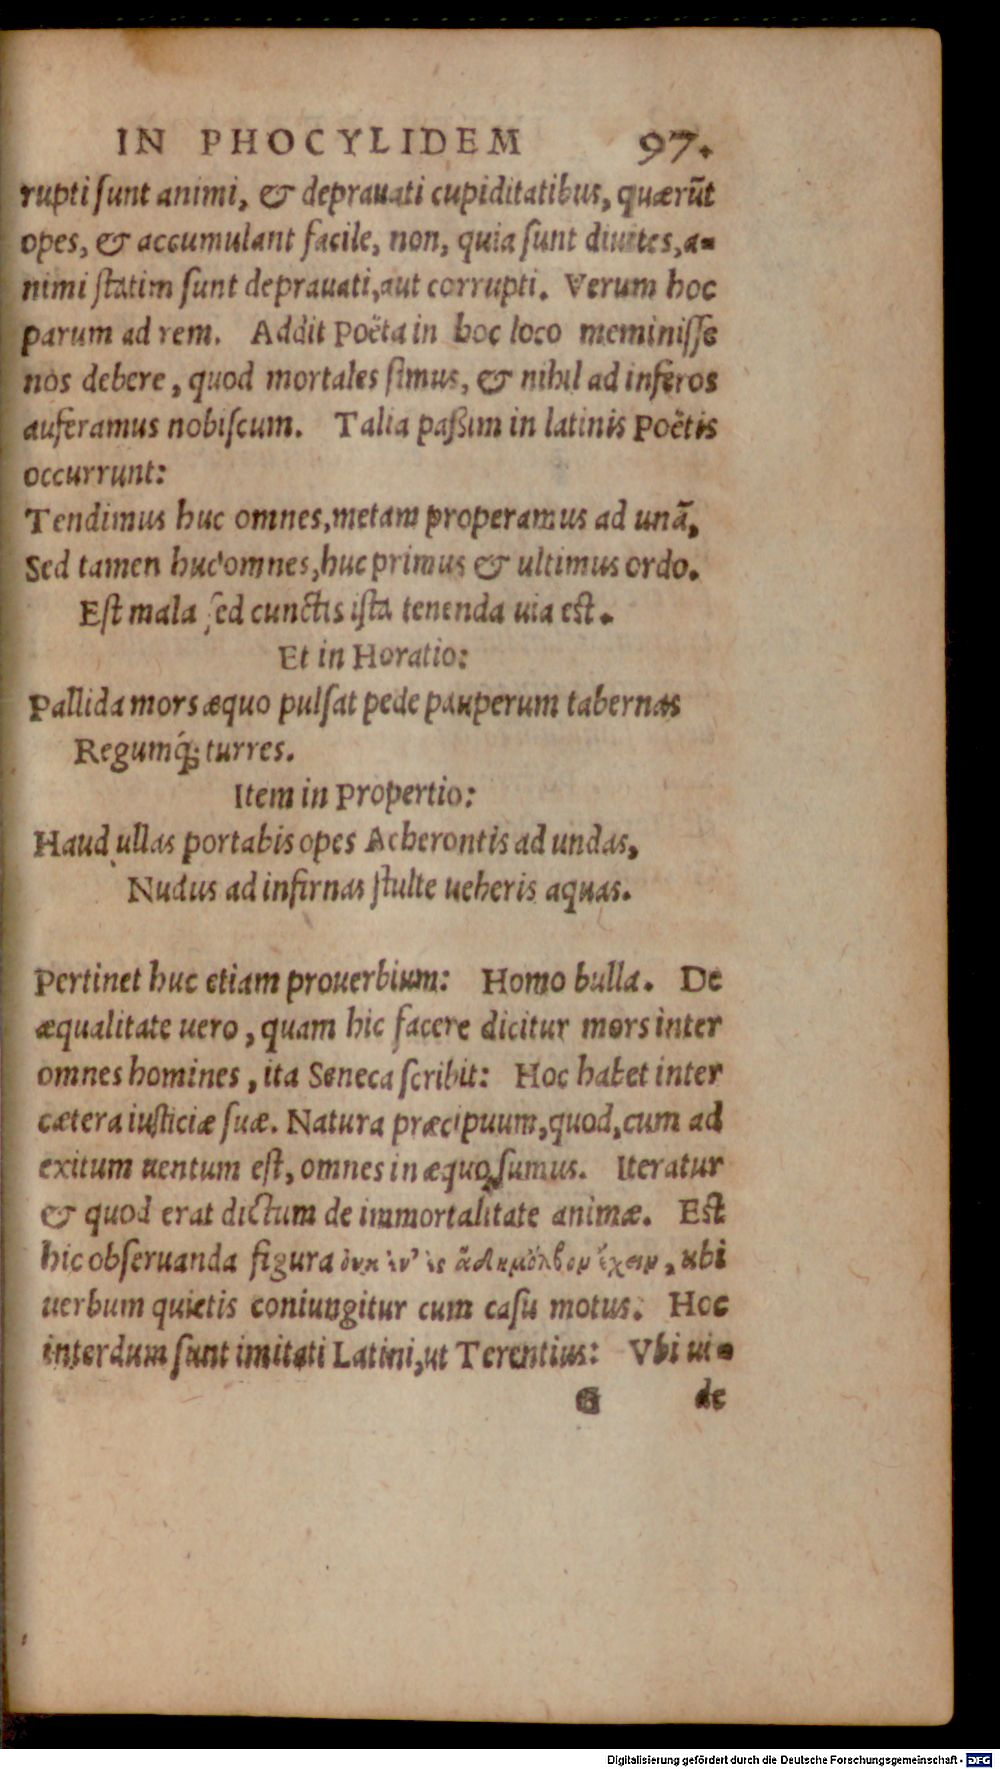 IN PHOCYLIDEM 97.
rupti ſunt animi, & deprauati cupiditatibus, quærūt
opes, & accumulant facile, non, quia ſunt diuites, a-
nimi ſtatim ſunt deprauati, aut corrupti. Verum hoc
parum ad rem. Addit Poëta in hoc loco meminiſſe
nos debere, quod mortales ſimus, & nihil ad inferos
auferamus nobiſcum. Talia paßim in latinis Poëtis
occurrunt:
Tendimus huc omnes, metam properamus ad unā,
Sed tamen huc omnes, huc primus & ultimus ordo.
Eſt mala ſed cunctis iſta tenenda uia eſt.
Et in Horatio:
Pallida mors æquo pulſat pede pauperum tabernas
Regumq́; turres.
Item in Propertio:
Haud ullas portabis opes Acherontis ad undas,
Nudus ad infirnas ſtulte ueheris aquas.
Pertinet huc etiam prouerbium: Homo bulla. De
æqualitate uero, quam hic facere dicitur mors inter
omnes homines, ita Seneca ſcribit: Hoc habet inter
cætera iuſticiæ ſuæ. Natura præcipuum, quod, cum ad
exitum uentum eſt, omnes in æquo ſumus. Iteratur
& quod erat dictum de immortalitate animæ. Eſt
hic obſeruanda figura ὀυκ ἐν' ἐς ἅδην ὄλβον ἔχειν, ubi
uerbum quietis coniungitur cum caſu motus. Hoc
interdum ſunt imitati Latini, ut Terentius: Vbi ui-
G de
Digitalisierung gefördert durch die Deutsche Forschungsgemeinschaft - DFG